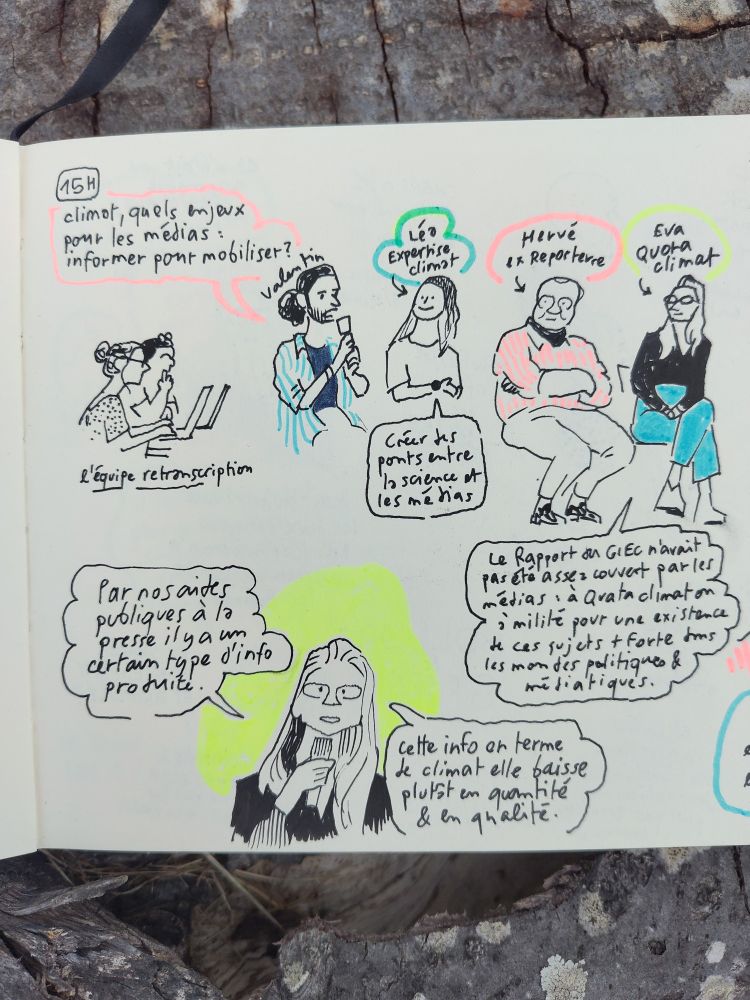 15H
climat, quels enjeux
pour les médias :
informer pour mobiliser?
Valentin
Léa
Expertise
climat
Hervé
ex Reporterre
Eva
Quota
climat
l'équipe retranscription
Créer des
ponts entre
la science et
les médias
Le Rapport du GIEC n'avait
pas été assez couvert par les
médias : à Quota climat on
à milité pour une existence
de ces sujets + forte dans
les mondes politiques &
médiatiques.
Par nos aides
publiques à la
presse il y a un
certain type d'info
produite.
Cette info en terme
de climat elle baisse
plutôt en quantité
& en qualité.